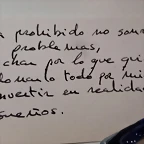 prohibido no son
problemas,
char por lo que qui
todo por mi
nvertir en realidad
sueños.